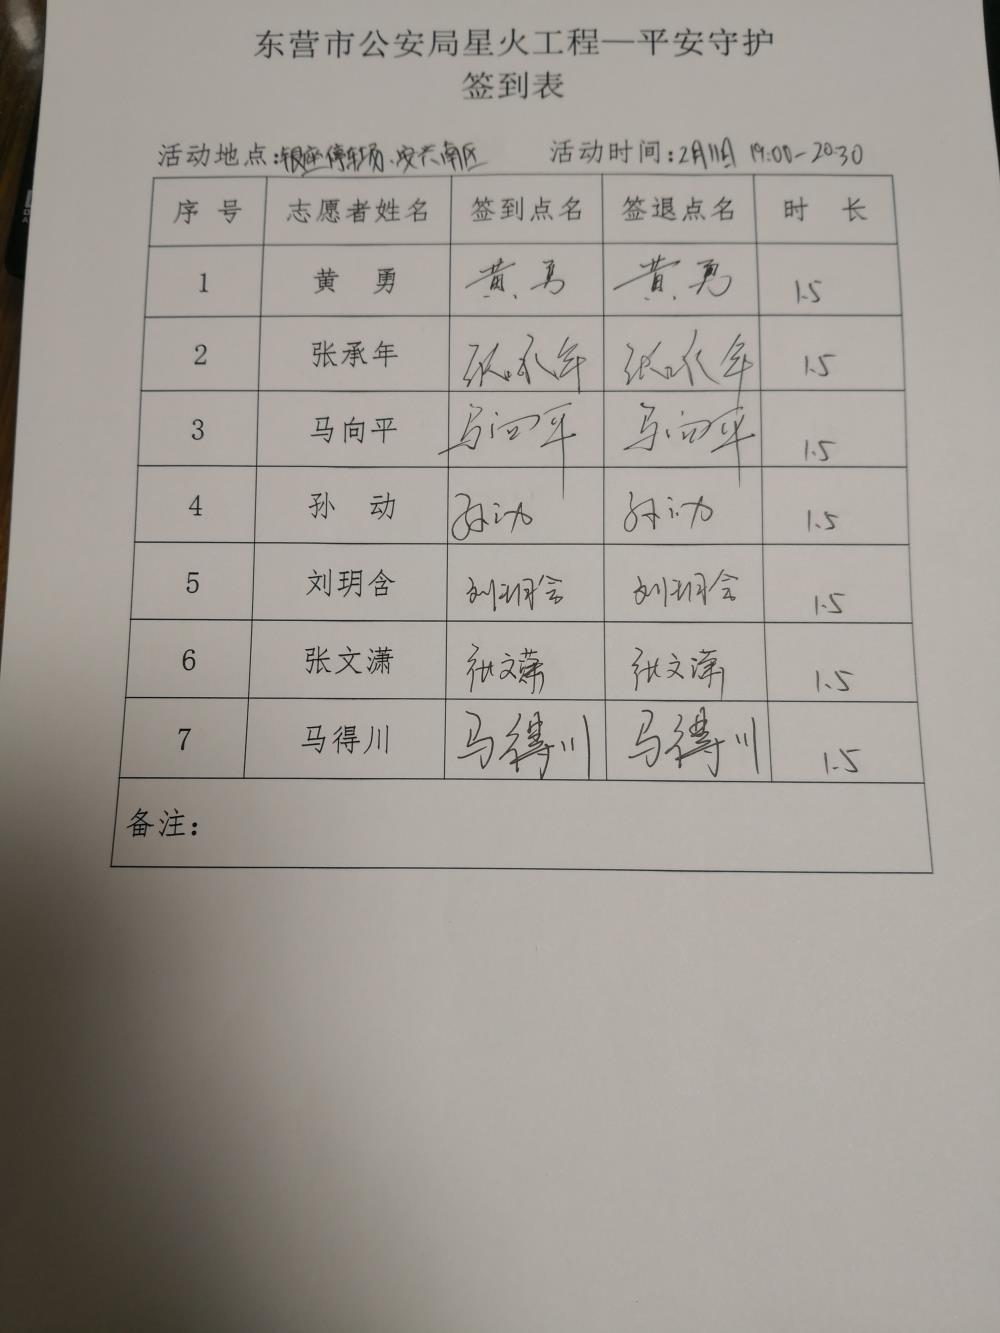 东营市公安局星火工程—平安守护
签到表
活动地点:银座停车场、安兴南区 活动时间:2月11日 19:00-20:30
序 号 志愿者姓名 签到点名 签退点名 时 长
1 黄 勇 黄勇 黄勇 1.5
2 张承年 张承年 张承年 1.5
3 马向平 马向平 马向平 1.5
4 孙 动 孙动 孙动 1.5
5 刘玥含 刘玥含 刘玥含 1.5
6 张文潇 张文潇 张文潇 1.5
7 马得川 马得川 马得川 1.5
备注: